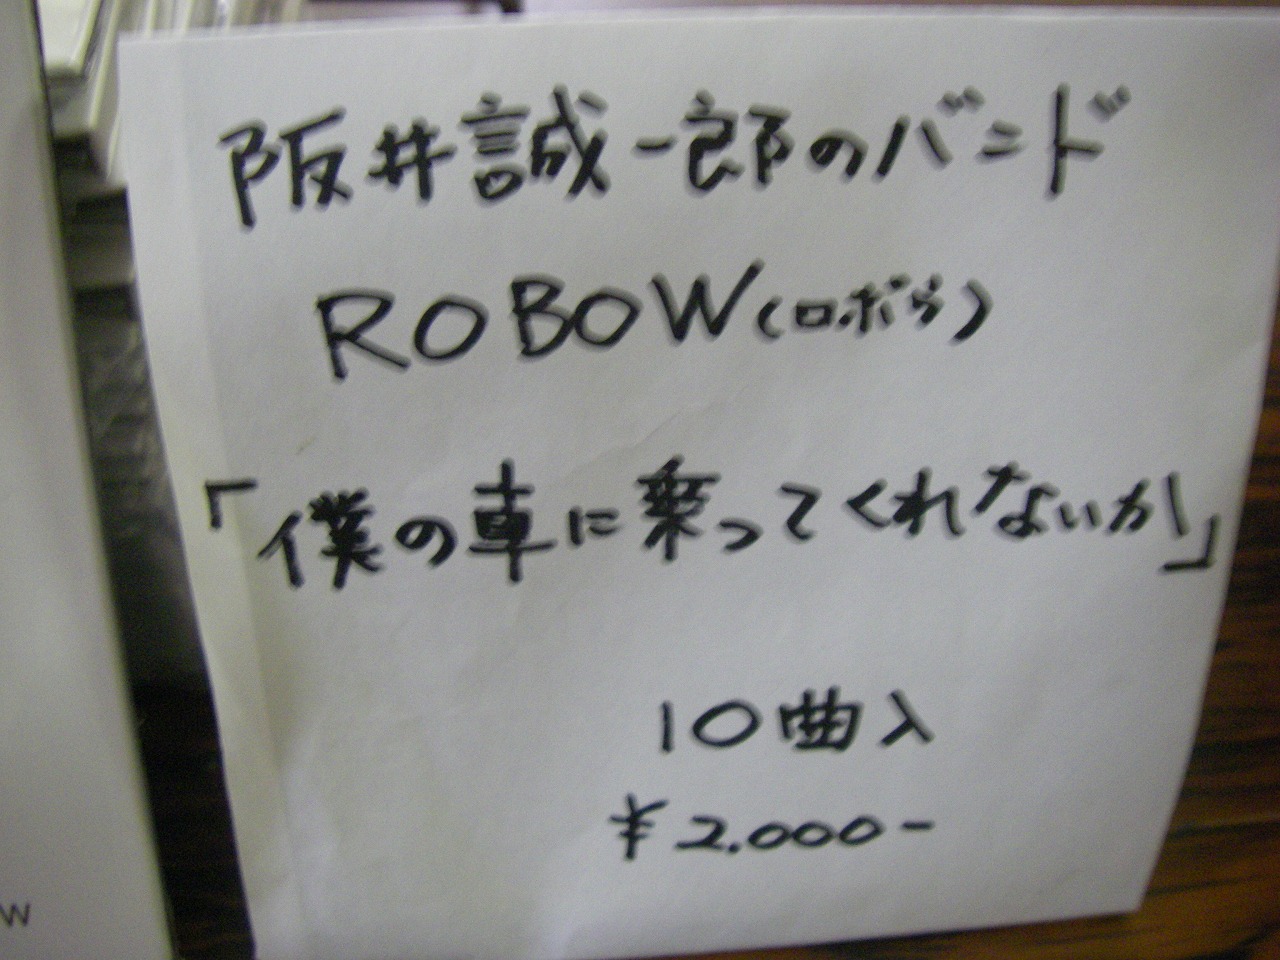 阪井誠一郎のバンド
ROBOW(ロボウ)
「僕の車に乗ってくれないか」
10曲入
¥2.000-
W